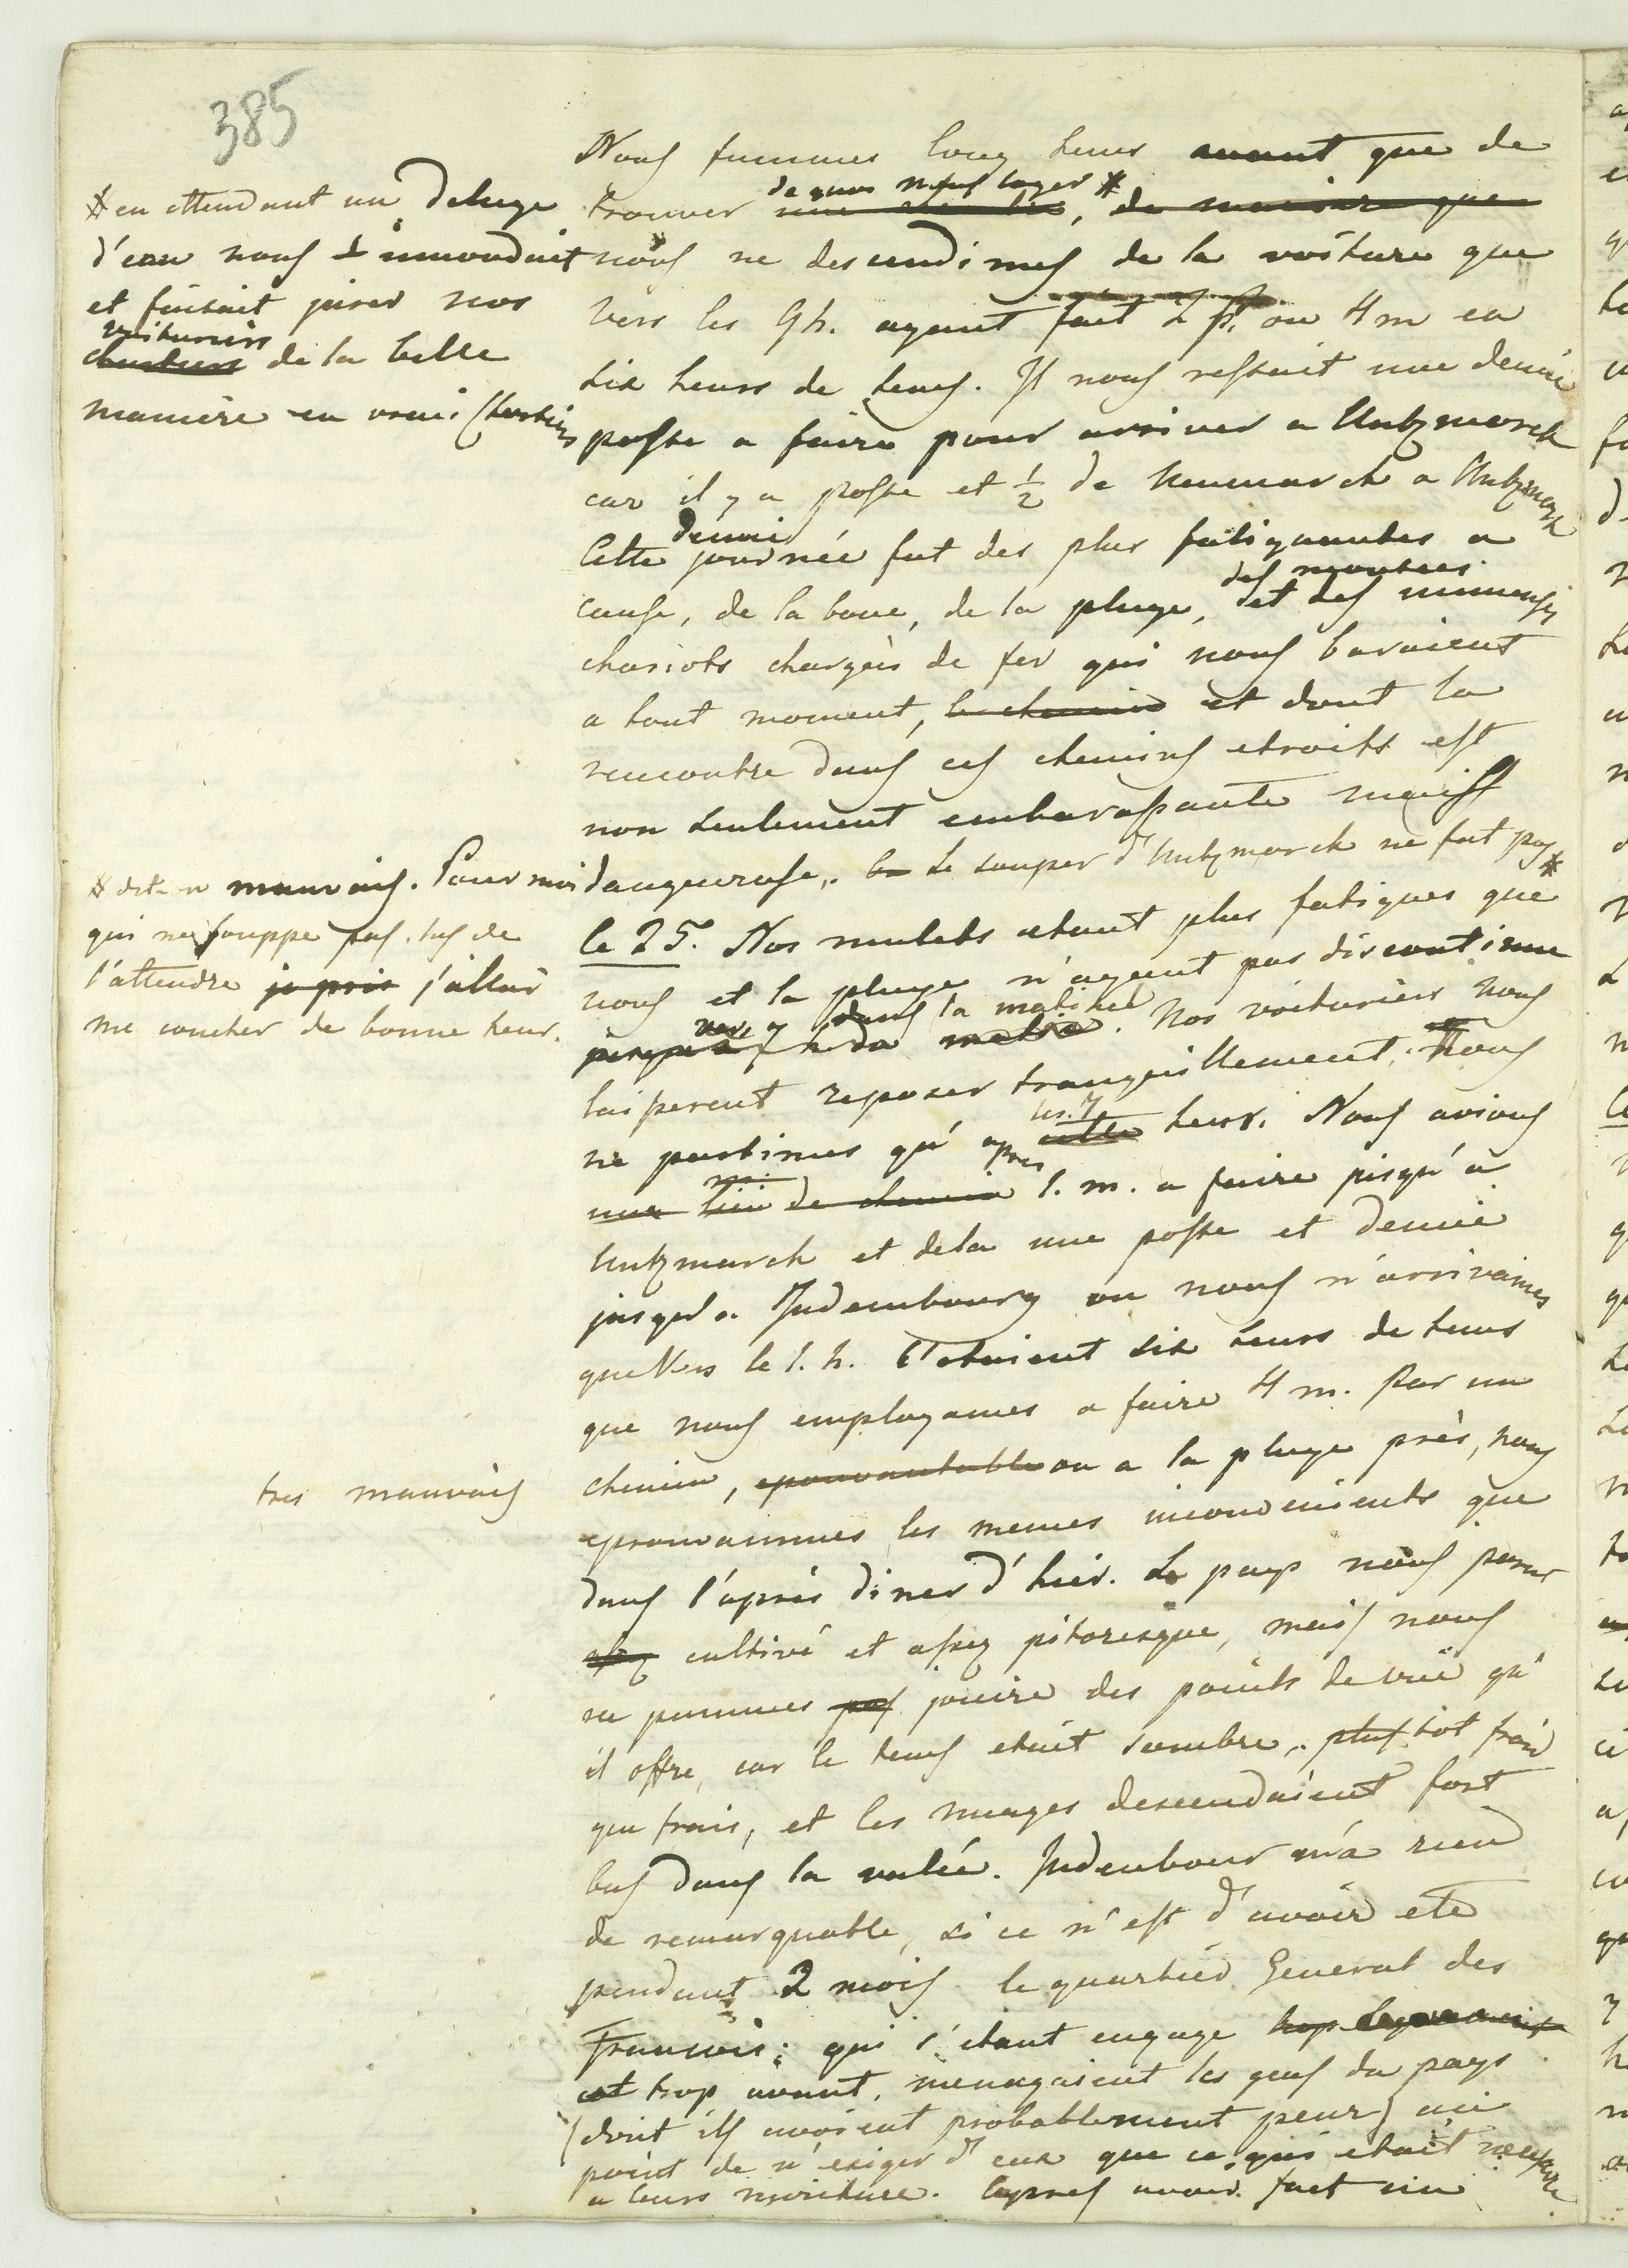 385
Nous fummes long tems avant que de
trouver de quoi nous loger *
nous ne descendimes de la voiture que
vers les 9h. ayant fait 2 p. ou 4 m en
six heurs de tems. Il nous restait une demie
poste a faire pour arriver a Untzmarck
car il y a poste et ½ de Neumarck a Untzmark
Cette demi journée fut des plus fatiguantes a
cause, de la boue, de la pluye, des montées et des immenses
chariots chargés de fer qui nous baraient
a tout moment, le chemin et dont la
rencontre dans ces chemins etroits est
non seulement embarassante maiss
dangeureuse. le souper d'Untzmarck ne fut pas *
le 25. Nos mulets etant plus fatigues que
nous et la pluye n'ayant pas discontinue
jusqu'a vers 7 h dans la matinée. Nos voituriers nous
laisserent reposer tranquillement. Nous
ne partimes qu' apres les 7 cette heur. Nous avions
une lieu de chemin 1. m. a faire jusqu'à
Untzmarck et dela une poste et demie
jusqu'a Judembourg ou nous n'arrivames
que vers le 1. h. C'etaient six heurs de tems
que nous employames a faire 4 m. par un
chemin, epouvantable ou a la pluye près, nous
eprouvammes les memes inconvenients que
dans l'après diner d'hier. Le pays nous parut
assez cultivé et assez pitoresque, mais nous
ne pummes pas jouire des points de vuë qu'
il offre, car le tems etait sombre, plus tot froid
que frais, et les nuages descendaient fort
bas dans la valée. Judenbour n'a rien
de remarquable, si ce n'est d'avoir eté
pendant 2 mois le quartier General des
Francois; qui s'etant engage
et trop avant, menagaient les gens du pays
(dont ils avoient probablement peur) au
point de n'exiger d'eux que ce qui etait necessaire
a leurs noriture. Apres avoir fait un
* en attendant un deluge
d'eau nous innondait
et faisait jurer nos
voituriers de la belle
manière en vrais
* dit-on mauvais. Pour moi
qui ne souppe pas, las de
l'attendre je pris j'allai
me coucher de bonne heur.
tres mauvais